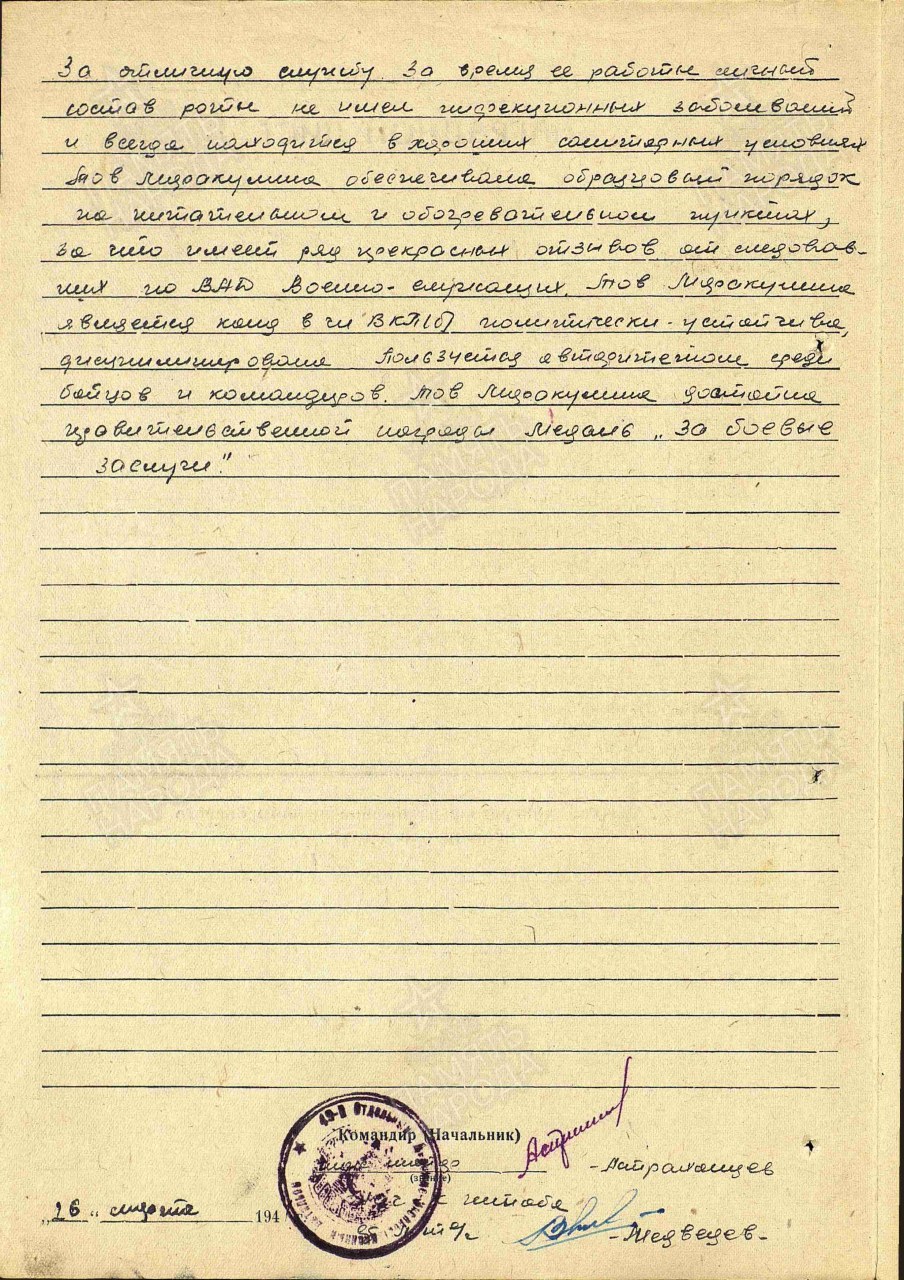 За отличную службу. За время ее работы личный
состав роты не имел инфекционных заболеваний
и всегда находится в хороших санитарных условиях
Тов Мидракулина обеспечивала образцовый порядок
на питательном и обогревательном пунктах,
за что имеет ряд прекрасных отзывов от следовав-
ших по ВАД Военно-служащих. Тов Мидракулина
является канд в чл ВКП(б) политически-устойчива,
дисциплинирована Пользуется автаритетом среди
бойцов и командиров. Тов Мидракулина достойна
правительственной награды Медаль „За боевые
заслуги".
Командир (Начальник)
(звание)
-Астраханцев
штаба
„26" марта 194
-Медведев-
49-й Отдельный
ПАМЯТЬ НАРОДА